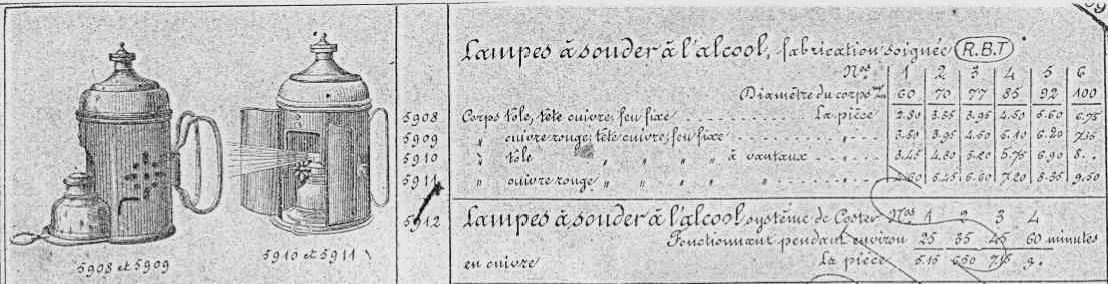 Lampes à souder à l'alcool, fabrication soignée R.B.T
Nos 1 2 3 4 5 6
Diamètre du corps 60 70 77 85 92 100
5908 Corps tôle, tête cuivre, feu fixe La pièce 2.80 3.35 3.95 4.50 5.60 6.75
5909 " cuivre rouge, tête cuivre, feu fixe " 3.50 3.95 4.60 6.20 7.35
5910 " tôle " " " à vantaux " 3.45 4.30 5.20 5.75 6.90 8."
5911 " cuivre rouge " " " " " 5.45 6.60 7.20 8.35 9.50
5912 Lampes à souder à l'alcool, système de Coster Nos 1 2 3 4
Fonctionnant pendant environ 25 35 45 60 minutes
en cuivre La pièce 5.15 9."
5908 et 5909
5910 et 5911